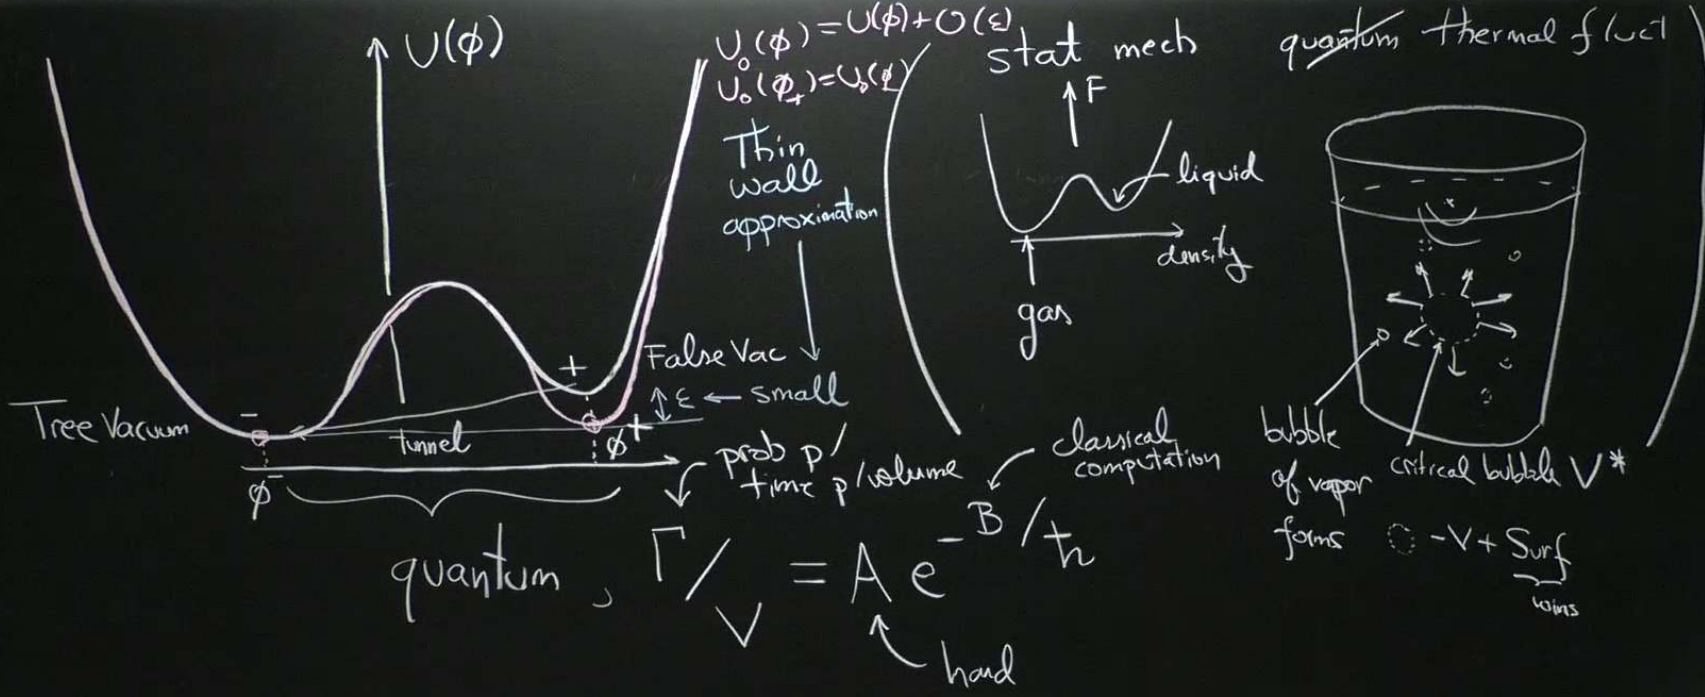 U(φ)
U₀(φ) = U(φ) + O(ε)
U₀(φ₊) = U₀(φ₋)
Thin
wall
approximation
+
False Vac
ε ← small
-
True Vacuum
tunnel
φ⁺
φ⁻
quantum,
prob p/
time p/volume
classical
computation
Γ/V = A e^{-B/ħ}
hard
stat mech
F
liquid
density
gas
quantum thermal fluct
bubble
of vapor
forms
critical bubble V*
-V + Surf
wins